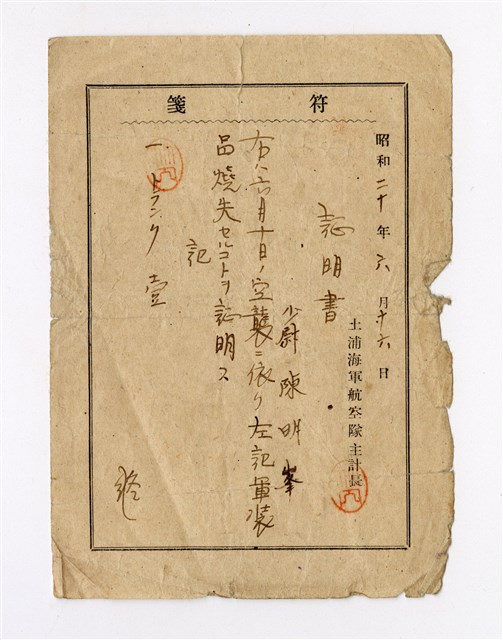 符箋
昭和二十年六月十六日
土浦海軍航空隊主計長
証明書
少尉 陳明峯
右ハ六月十日ノ空襲ニ依リ左記軍装
品燒失セルコトヲ証明ス
記
一、トランク 壹
終